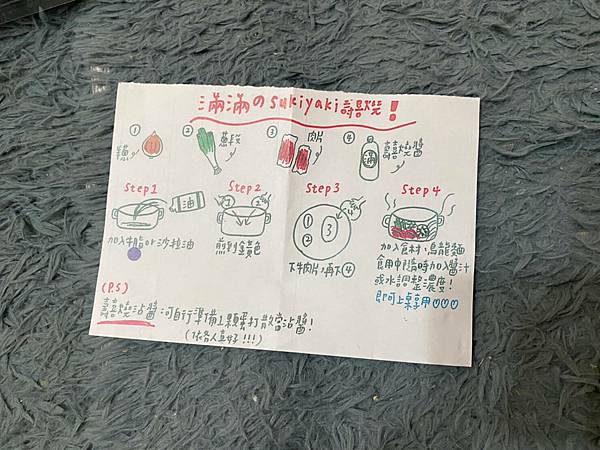 滿滿のsukiyaki壽喜燒!
① 洋蔥
② 蔥段
③ 肉片
④ 壽喜燒醬
滿
Step 1
Step 2
Step 3
Step 4
油
① ②
① ② ③
④
加入牛脂or沙拉油
煎到金黃色
下牛肉片,再下④
加入食材、烏龍麵
食用中隨時加入醬汁
或水調整濃度!
即可上桌享用♡♡♡
(P.S)
壽喜燒沾醬:可自行準備1顆蛋打散當沾醬!
(依各人喜好!!!)